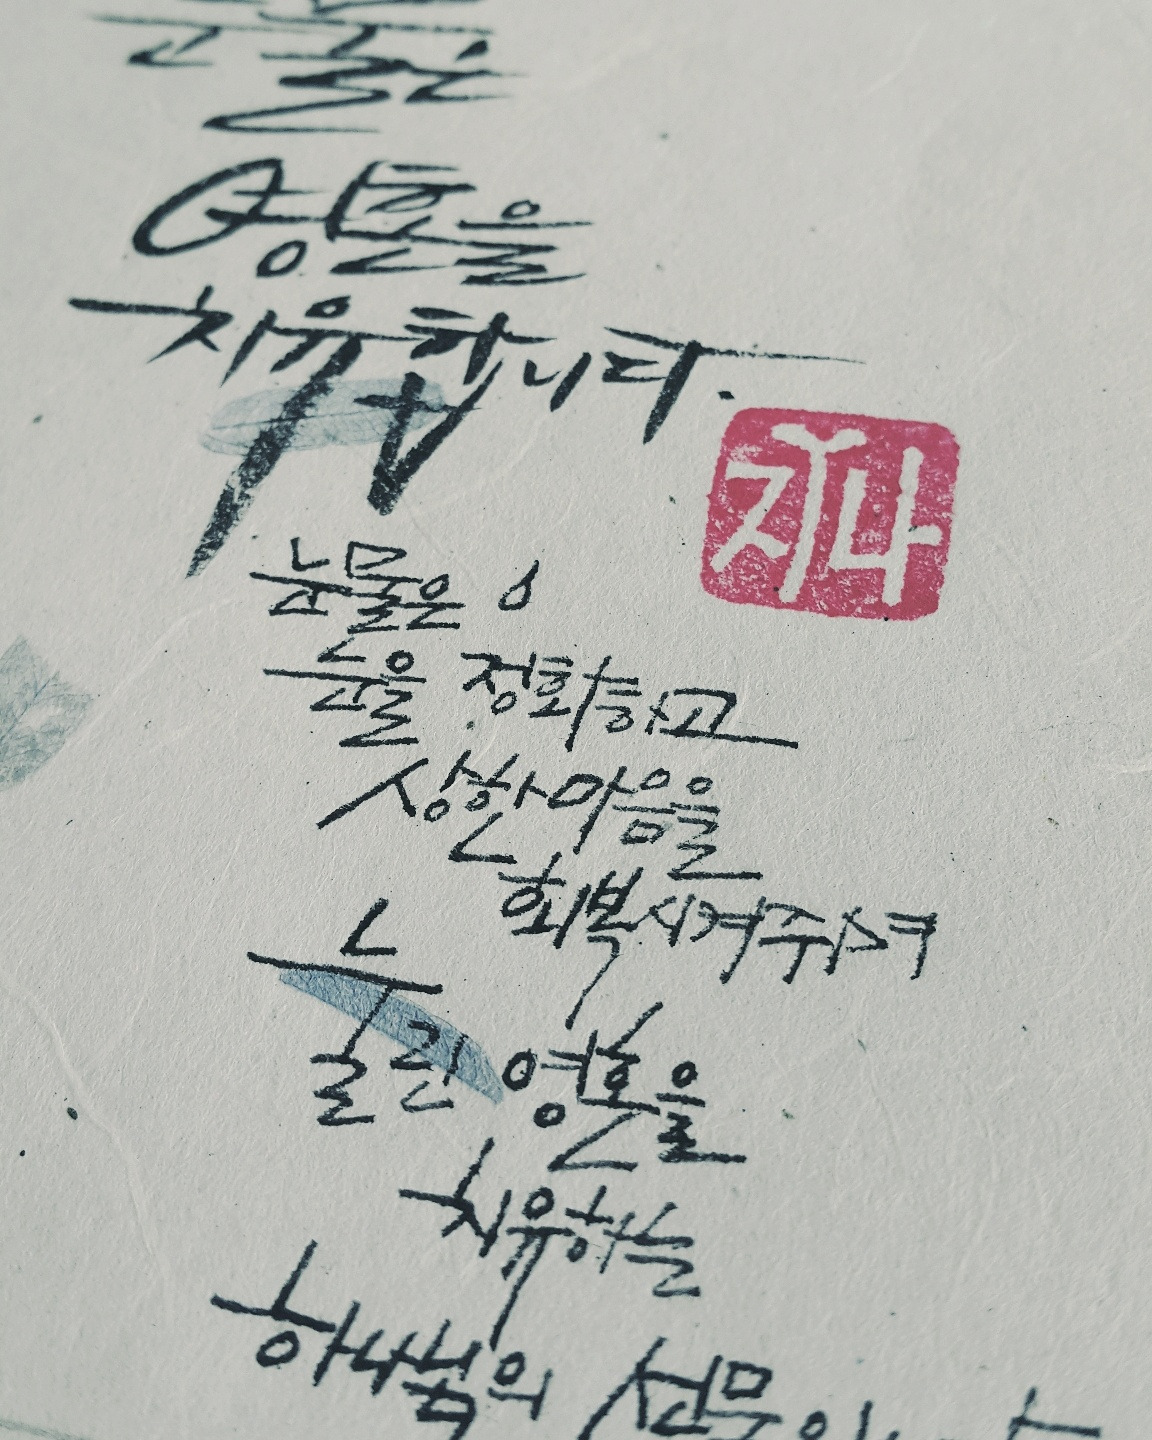 눈물은
영혼을
치유합니다.
지나
눈물은
눈을 정화하고
상한 마음을
회복시켜주며
눌린 영혼을
치유하는
하나님의 선물입니다